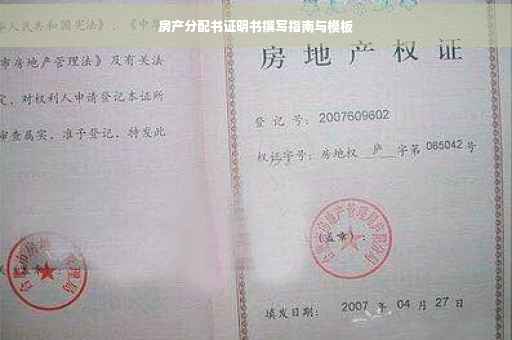 房产分配书证明书撰写指南与模板
人民共和国宪法》、《中
市房地产管理法》及有关法
定，对权利人申请登记本证所
审查属实，准予登记，特发此
房地产权证
登记号：2007609602
权证字号：房地权 庐 字第 065042 号
(盖章)：
填发日期： 2007 年 04 月 27 日